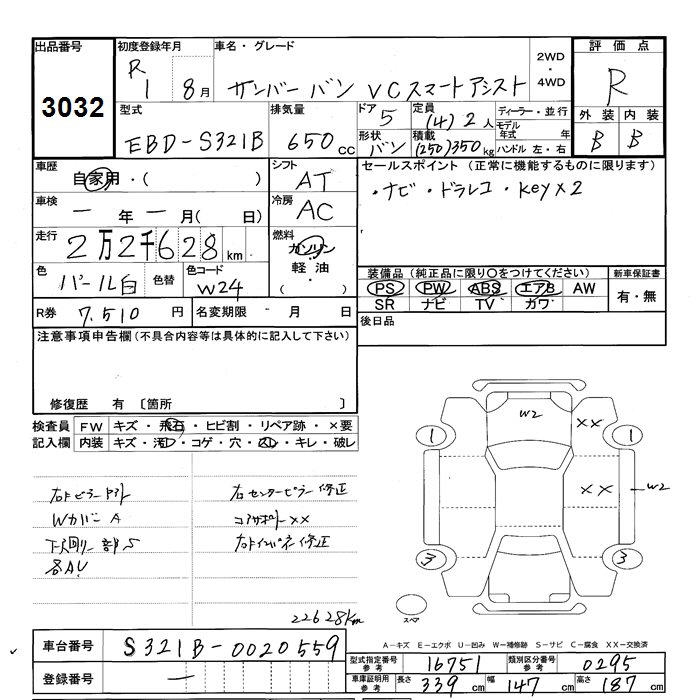 出品番号 初度登録年月 車名・グレード 2WD・4WD 評価点
3032 R1 8月 サンバー バン VCスマートアシスト R
型式 排気量 ドア 5 定員 (4)2人 ディーラー・並行 外装 内装
EBD-S321B 650cc 形状 バン 積載 (250)350kg モデル年式 年 ハンドル 左・右 B B
車歴 シフト セールスポイント (正常に機能するものに限ります)
自家用・( ) AT ・ナビ・ドラレコ・Key×2
車検 冷房
一年一月( 日) AC
走行 燃料
2万2千628km ガソリン
色 色替 色コード 軽油 装備品(純正品に限り○をつけてください) 新車保証書
パール白 W24 ・( ) PS PW ABS エアB AW 有・無
SR ナビ TV カワ
R券 7,510円 名変期限 - 月 日 後日品
注意事項申告欄(不具合内容等は具体的に記入して下さい)
修復歴 有 〔箇所 〕
検査員 FW キズ・飛石・ヒビ割・リペア跡・×要
記入欄 内装 キズ・汚レ・コゲ・穴・スレ・キレ・破レ
W2 ××
1 1
×× W2
3 3
スペア
右センターピラー修正
Wカバー A
コアサポート××
下廻リ一部S
各AU
22628km
車台番号 S321B-0020559
登録番号 一
A-キズ E-エクボ U-凹み W-補修跡 S-サビ C-腐食 XX-交換済
型式指定番号 参考 16751 類別区分番号 参考 0295
車庫証明用 参考 長さ 339cm 幅 147cm 高さ 187cm